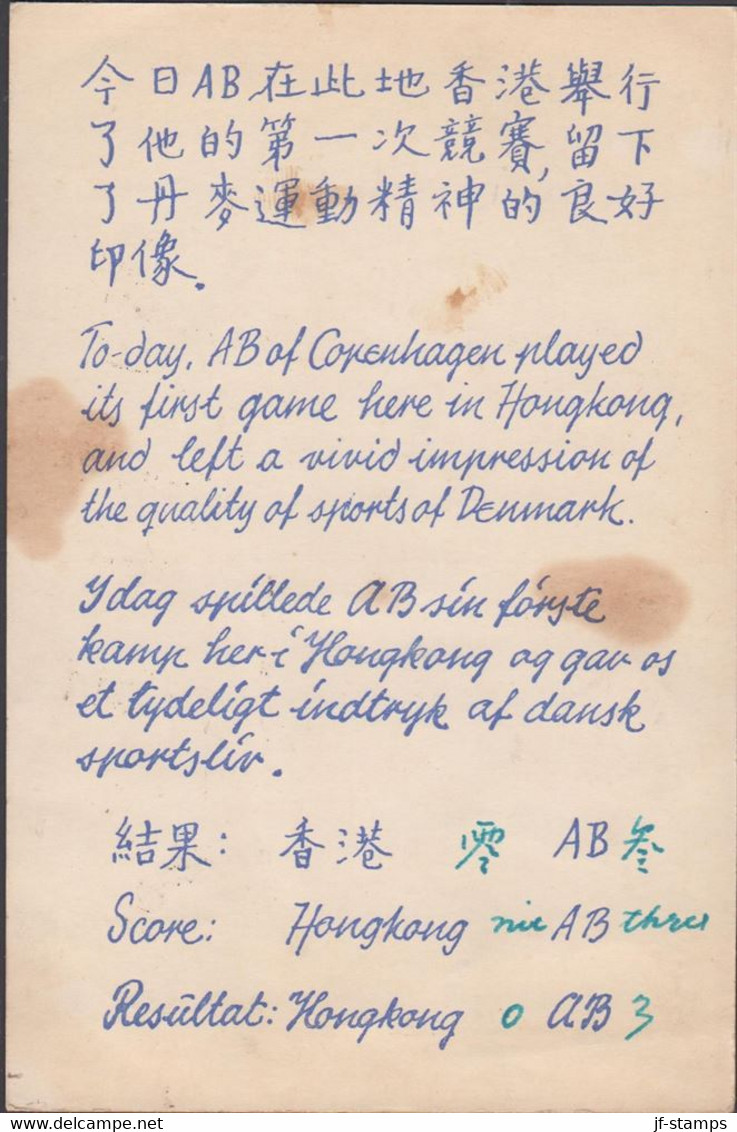 今日AB在此地香港舉行
了他的第一次競賽,留下
了丹麥運動精神的良好
印像.
To-day, AB of Copenhagen played
its first game here in Hongkong,
and left a vivid impression of
the quality of sports of Denmark.
Ydag spillede AB sin förste
kamp her i Hongkong og gav os
et tydeligt indtryk af dansk
sportsliv.
結果: 香港 零 AB 叁
Score: Hongkong nil AB three
Resültat: Hongkong 0 AB 3
jf-stamps